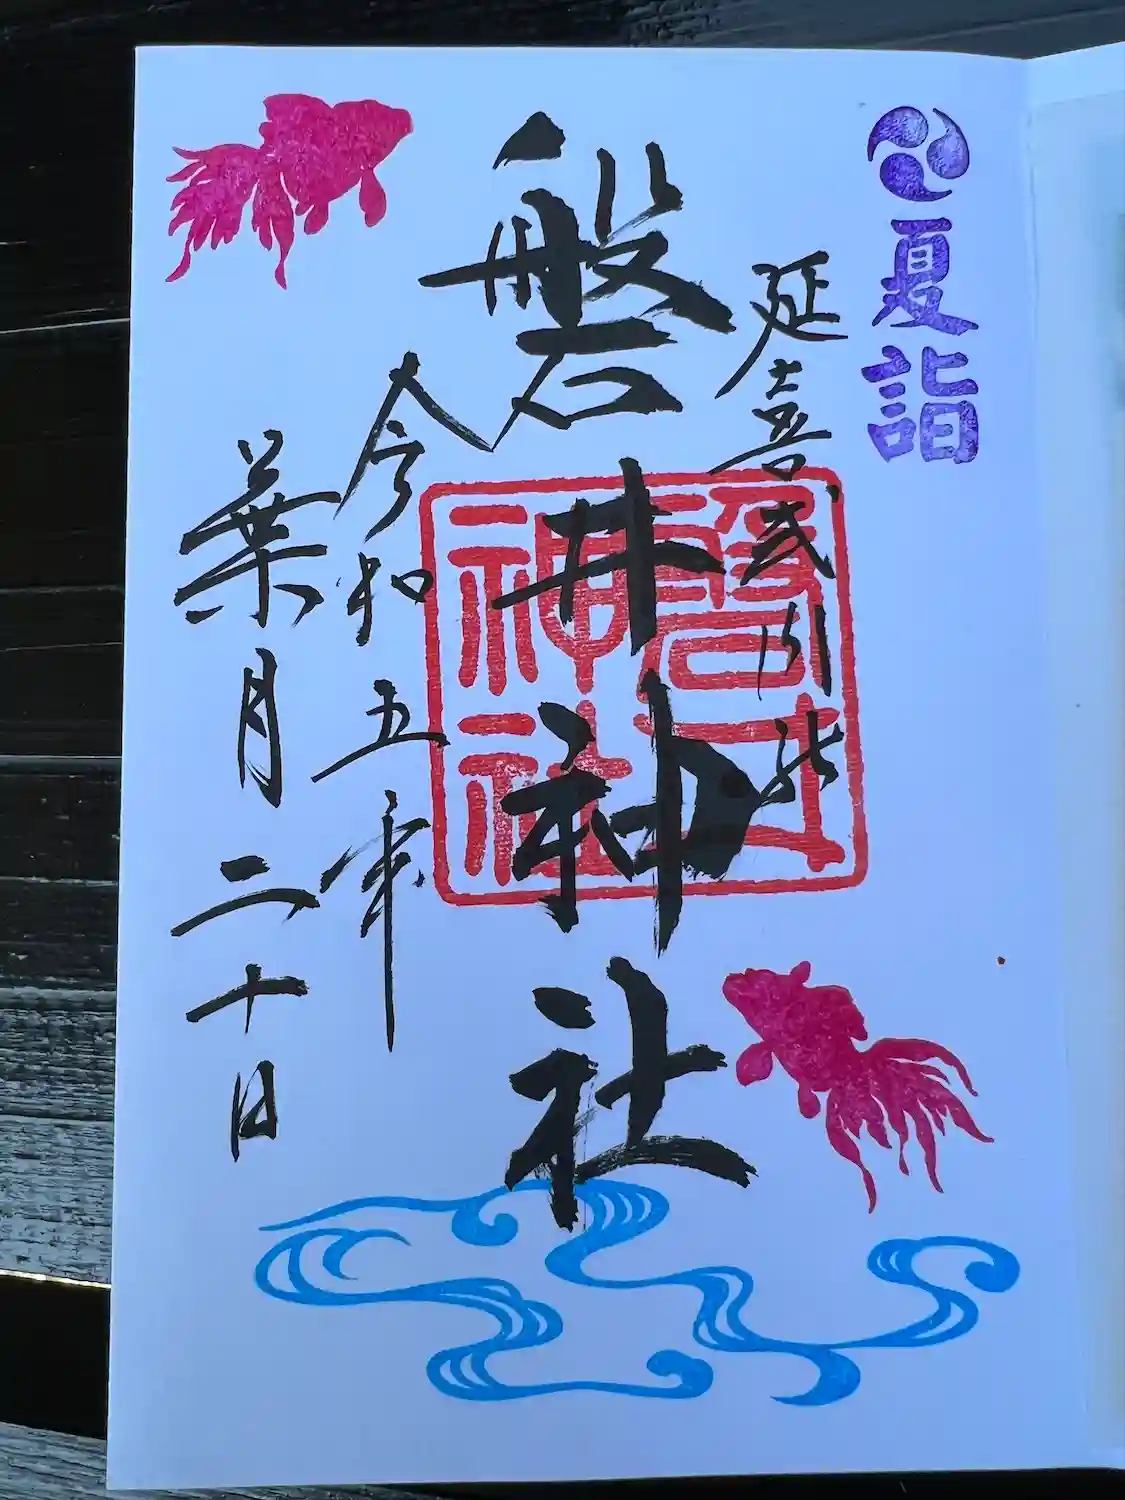 夏詣
延喜式内社
磐井神社
磐井神社
令和五年
葉月二十日